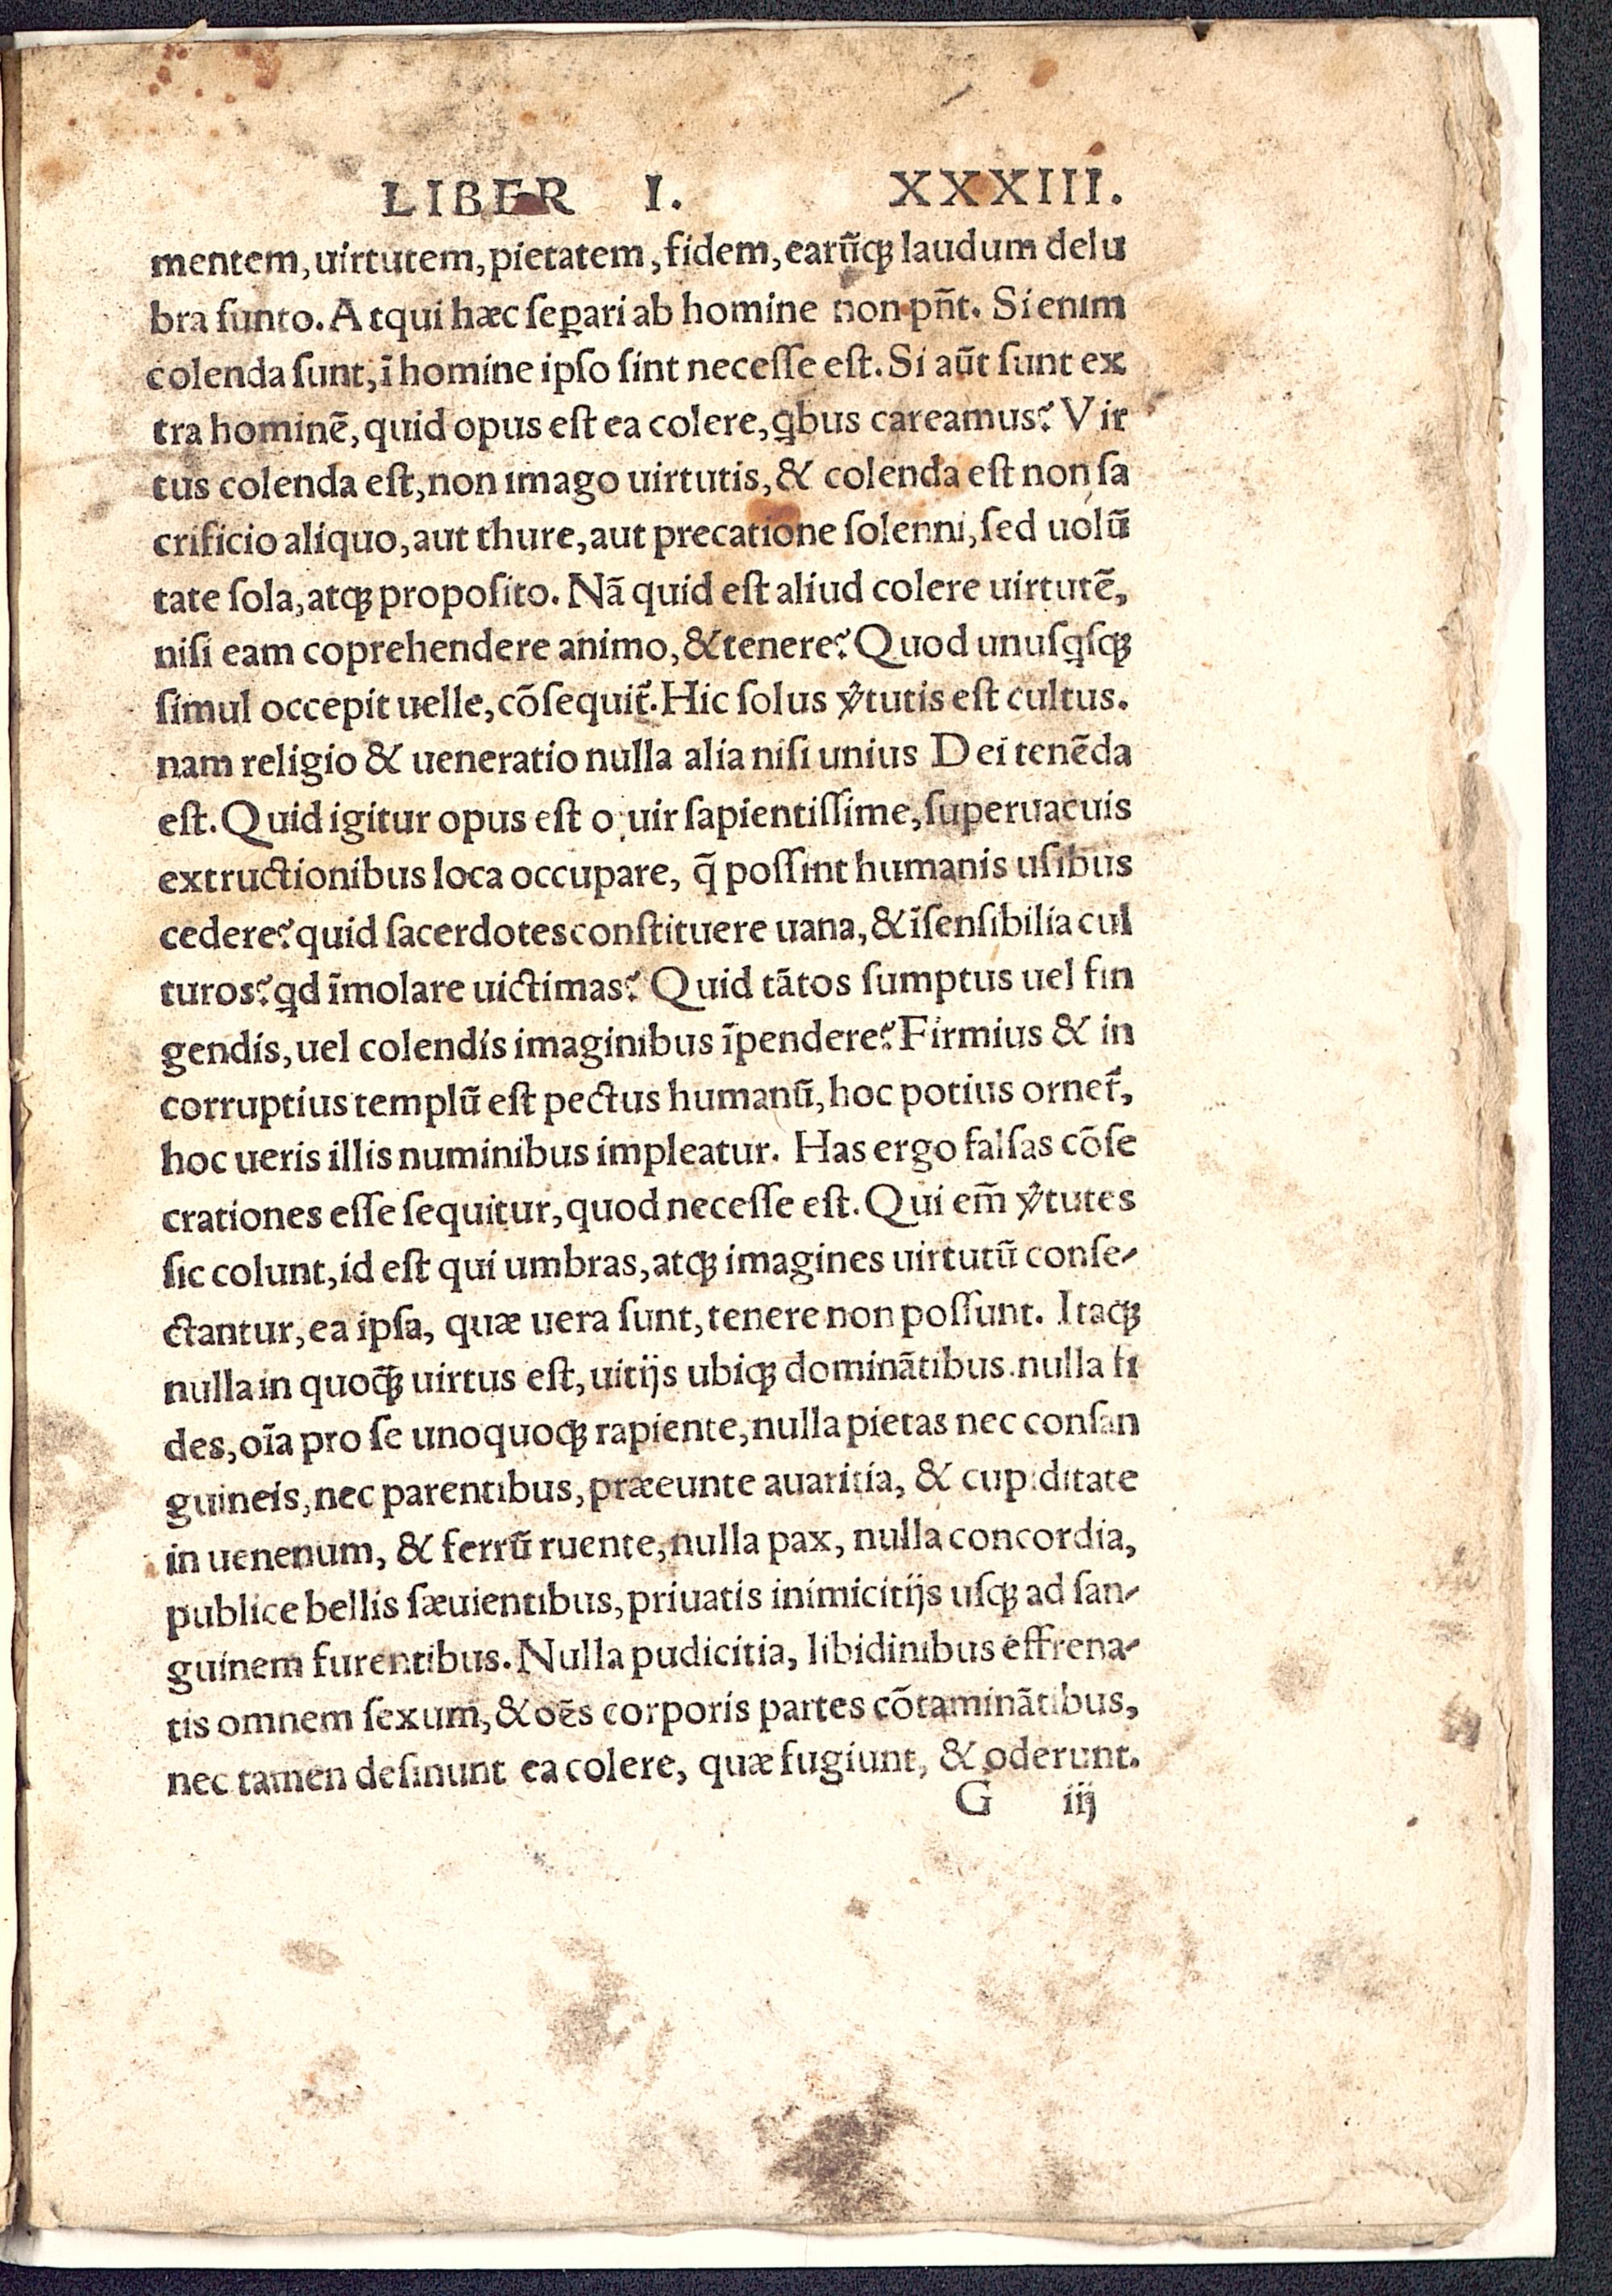 LIBER I. XXXIII.
mentem, uirtutem, pietatem, fidem, earūqꝫ laudum delu
bra sunto. Atqui hæc seꝑari ab homine non pn̄t. Si enim
colenda ſunt, ī homine ipſo ſint neceſſe eſt. Si aūt ſunt ex
tra hominē, quid opus eſt ea colere, ꝗbus careamus? Vir
tus colenda eſt, non imago uirtutis, & colenda eſt non ſa
crificio aliquo, aut thure, aut precatione ſolenni, ſed uolū
tate ſola, atqꝫ propoſito. Nā quid eſt aliud colere uirtutē,
niſi eam coprehendere animo, & tenere? Quod unuſꝗſqꝫ
ſimul occepit uelle, cōſequit᷑. Hic ſolus v̾tutis eſt cultus.
nam religio & ueneratio nulla alia niſi unius Dei tenēda
eſt. Quid igitur opus eſt o uir ſapientiſſime, ſuperuacuis
extructionibus loca occupare, q̄ poſſint humanis uſibus
cedere? quid ſacerdotes conſtituere uana, & īſenſibilia cul
turos? ꝗd īmolare uictimas? Quid tātos ſumptus uel fin
gendis, uel colendis imaginibus īpendere? Firmius & in
corruptius templū eſt pectus humanū, hoc potius ornet᷑,
hoc ueris illis numinibus impleatur. Has ergo falſas cōſe
crationes eſſe ſequitur, quod neceſſe eſt. Qui em̄ v̾tutes
ſic colunt, id eſt qui umbras, atqꝫ imagines uirtutū conſe-
ctantur, ea ipſa, quæ uera ſunt, tenere non poſſunt. Itaqꝫ
nulla in quoq̄ꝫ uirtus eſt, uitijs ubiqꝫ dominātibus. nulla fi
des, oīa pro ſe unoquoqꝫ rapiente, nulla pietas nec conſan
guineis, nec parentibus, præeunte auaritia, & cupiditate
in uenenum, & ferrū ruente, nulla pax, nulla concordia,
publice bellis ſæuientibus, priuatis inimicitijs uſqꝫ ad ſan-
guinem furentibus. Nulla pudicitia, libidinibus effrena-
tis omnem ſexum, & oēs corporis partes cōtaminātibus,
nec tamen deſinunt ea colere, quæ fugiunt, & oderunt.
G iij